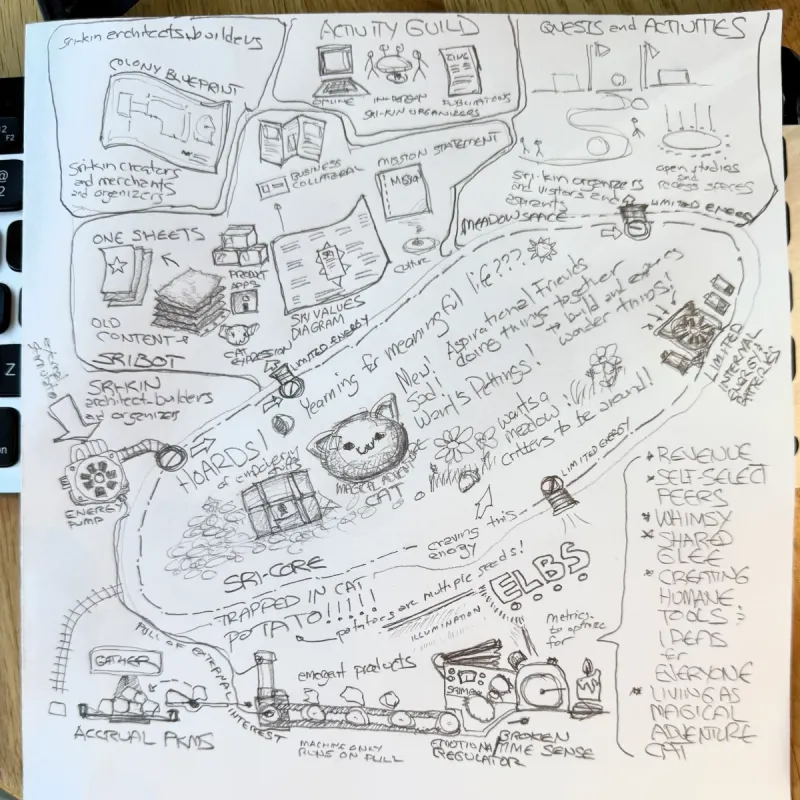 Sri-kin architects + builders
COLONY BLUEPRINT
Sri-kin creators
and merchants
and organizers
ACTIVITY GUILD
ONLINE
IN-PERSON
PUBLICATIONS
ZINE
SRI-KIN ORGANIZERS
QUESTS and ACTIVITIES
Sri-kin organizers
and visitors and
aspirants
open studios
and
recess spaces
BUSINESS
COLLATERAL
MISSION STATEMENT
MISSION
culture
ONE SHEETS
PRODUCT
APPS
OLD
CONTENT
SRIBOT
CAT EXPRESSION
SRI VALUES
DIAGRAM
LIMITED ENERGY
MEADOWSPACE
LIMITED ENERGY
LIMITED
INTERNAL
ENERGY
BATTERIES!
SRI-KIN
architect-builders
and organizers
ENERGY
PUMP
Yearning for meaningful life???
New!
Sad!
Wants Pettings!
Aspirational Friends
doing things together
→ build and explore
wonder things!
HOARDS!
of
MAGICAL ADVENTURE
CAT
wants a
meadow!
critters to be around!
LIMITED ENERGY
craving this
energy
SRI-CORE
TRAPPED IN CAT
POTATO!!!!!
potatoes are multiple seeds!
ILLUMINATION
ELBS
metrics
to optimize
for
PULL OF EXTERNAL
INTEREST
GATHER
ACCRUAL PKMS
emergent products
MACHINE ONLY
RUNS ON PULL
EMOTIONAL
REGULATOR
BROKEN
TIME SENSE
* REVENUE
* SELF-SELECT
PEERS
* WHIMSY
* SHARED
GLEE
* CREATING
HUMANE
TOOLS &
IDEAS
for
EVERYONE
* LIVING AS
MAGICAL
ADVENTURE
CAT